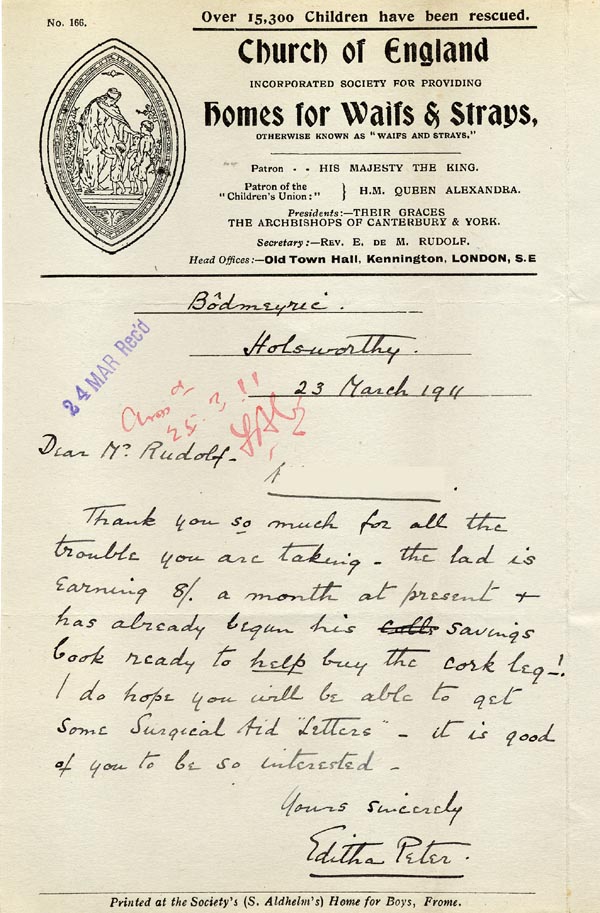 No. 166.
Over 15,300 Children have been rescued.
Church of England
INCORPORATED SOCIETY FOR PROVIDING
Homes for Waifs & Strays,
OTHERWISE KNOWN AS "WAIFS AND STRAYS."
Patron . . HIS MAJESTY THE KING.
Patron of the "Children's Union:" } H.M. QUEEN ALEXANDRA.
Presidents:—THEIR GRACES
THE ARCHBISHOPS OF CANTERBURY & YORK.
Secretary:—REV. E. DE M. RUDOLF.
Head Offices:—Old Town Hall, Kennington, LONDON, S.E
Bôdmeyric.
Holsworthy.
23 March 1911
24 MAR Rec'd
25.3.11
Dear Mr. Rudolf-
Thank you so much for all the
trouble you are taking - the lad is
earning 8/. a month at present +
has already begun his savings
book ready to help buy the cork leg-!
I do hope you will be able to get
some Surgical Aid "Letters" - it is good
of you to be so interested -
Yours sincerely
Editha Peter.
Printed at the Society's (S. Aldhelm's) Home for Boys, Frome.